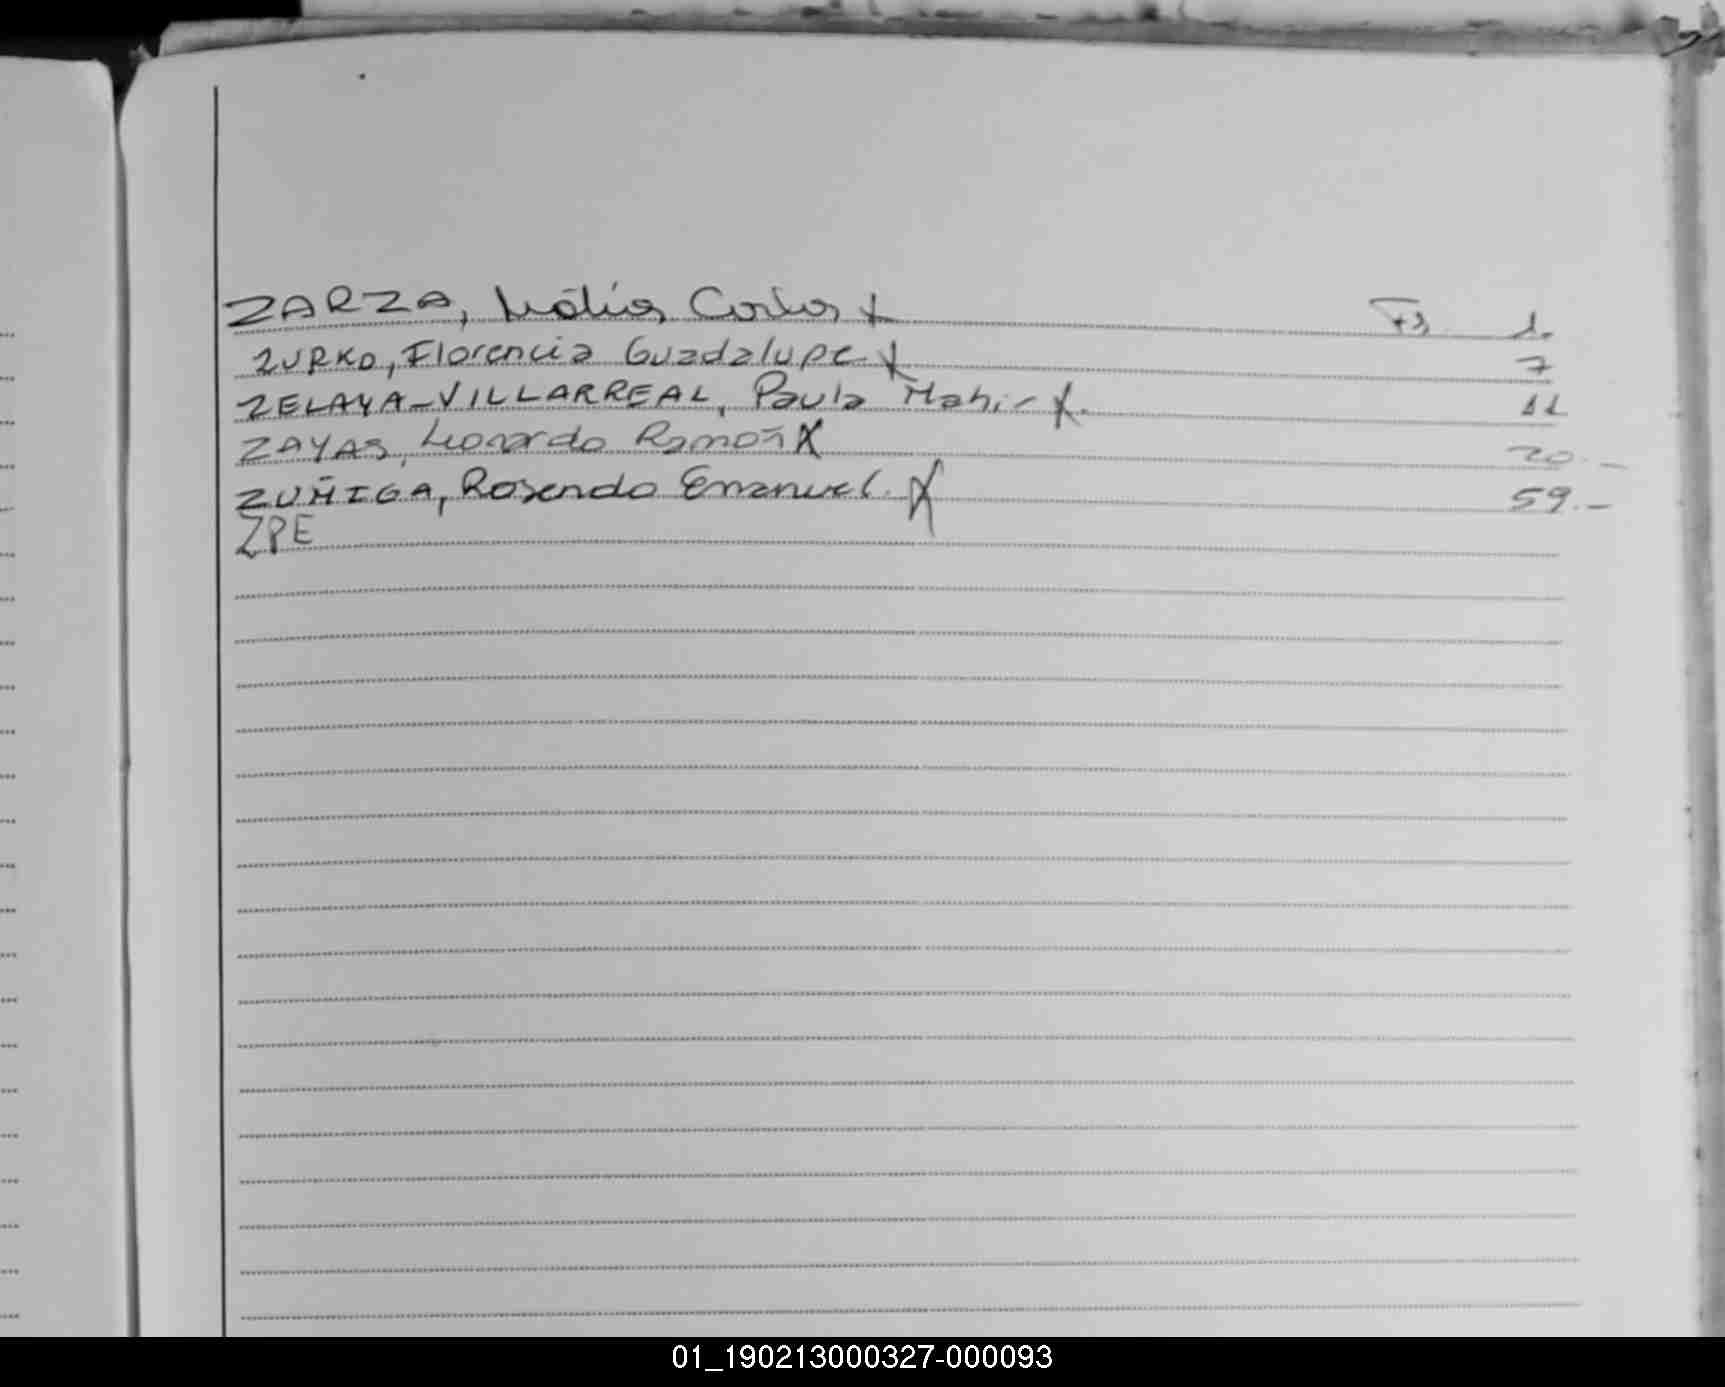 ZARZA, Carlos x Fs. 1.
ZURKO, Florencia Guadalupe x 7
ZELAYA-VILLARREAL, Paula x. 11
ZAYAS, Leonardo Ramón x 20.-
ZUÑIGA, Rosendo Emanuel. x 59.-
ZPE
01_190213000327-000093